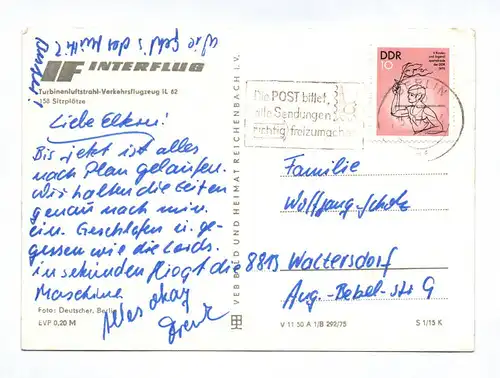 Wie geht's der Mutti?
INTERFLUG
Turbinenluftstrahl-Verkehrsflugzeug IL 62
158 Sitzplätze
Liebe Eltern!
Bis jetzt ist alles
nach Plan gelaufen.
Wir halten die Zeiten
genau nach min.
ein. Geschlafen u. ge-
gessen wie die Lords.
in sekunden fliegt die
Maschine.
Alles okay
Foto: Deutscher, Berlin
EVP 0,20 M
VEB BILD UND HEIMAT REICHENBACH i. V.
Die POST bittet,
alle Sendungen
richtig freizumachen
DDR
10
Familie
Wolfgang Scholz
8813 Waltersdorf
Aug.-Bebel-str 9
V 11 50 A 1/B 292/75
S 1/15 K